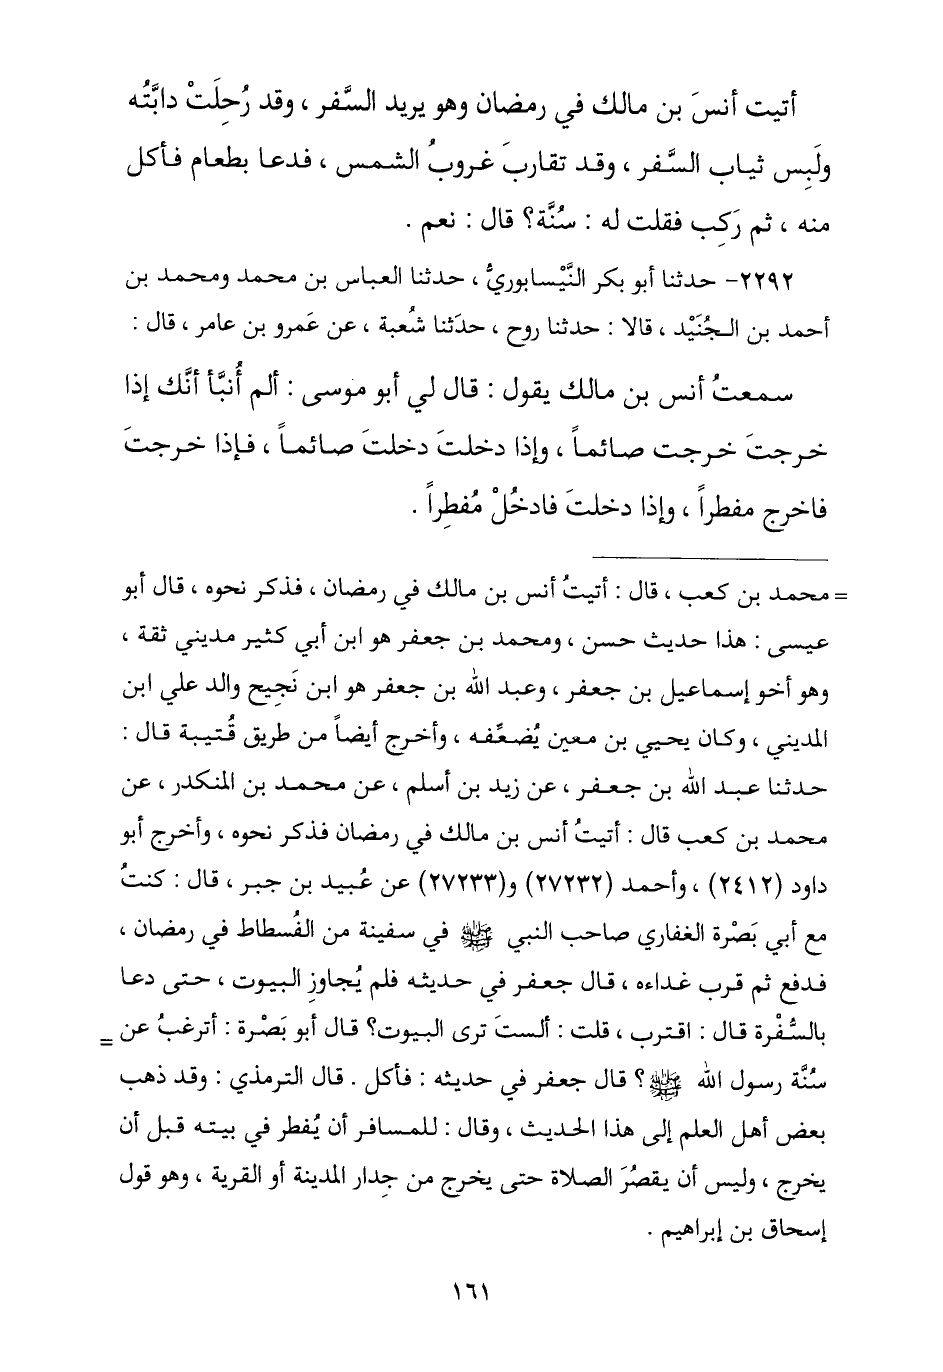 أتيت أنسَ بن مالك في رمضان وهو يريد السَّفر ، وقد رُحِلَتْ دابَّتُه
ولَبِس ثياب السَّفر ، وقد تقاربَ غروبُ الشمس ، فدعا بطعام فأكل
منه ، ثم رَكِب فقلت له : سُنَّة؟ قال : نعم .
٢٢٩٢- حدثنا أبو بكر النَّيْسابوريُّ ، حدثنا العباس بن محمد ومحمد بن
أحمد بن الجُنَيْد ، قالا : حدثنا روح ، حدَثنا شُعبة ، عن عَمرو بن عامر ، قال :
سمعتُ أنس بن مالك يقول : قال لي أبو موسى : ألم أُنبَّأ أنَّك إذا
خرجتَ خرجت صائماً ، وإذا دخلتَ دخلتَ صائماً ، فإذا خرجتَ
فاخرج مفطراً ، وإذا دخلتَ فادخُلْ مُفطِراً .
= محمد بن كعب ، قال : أتيتُ أنس بن مالك في رمضان ، فذكر نحوه ، قال أبو
عيسى : هذا حديث حسن ، ومحمد بن جعفر هو ابن أبي كثير مديني ثقة ،
وهو أخو إسماعيل بن جعفر ، وعبد الله بن جعفر هو ابن نَجيح والد علي ابن
المديني ، وكان يحيي بن معين يُضعِّفه ، وأخرج أيضاً من طريق قُتيبة قال :
حدثنا عبد الله بن جعفر ، عن زيد بن أسلم ، عن محمد بن المنكدر ، عن
محمد بن كعب قال : أتيتُ أنس بن مالك في رمضان فذكر نحوه ، وأخرج أبو
داود (٢٤١٢) ، وأحمد (٢٧٢٣٢) و(٢٧٢٣٣) عن عُبيد بن جبر ، قال : كنتُ
مع أبي بَصْرة الغفاري صاحب النبي ﷺ في سفينة من الفُسطاط في رمضان ،
فدفع ثم قرب غداءه ، قال جعفر في حديثه فلم يُجاوزِ البيوت ، حتى دعا
بالسُّفْرة قال : اقترب ، قلت : ألستَ ترى البيوت؟ قال أبو بَصْرة : أترغبُ عن =
سُنَّة رسول الله ﷺ ؟ قال جعفر في حديثه : فأكل . قال الترمذي : وقد ذهب
بعض أهل العلم إلى هذا الحديث ، وقال : للمسافر أن يُفطر في بيته قبل أن
يخرج ، وليس أن يقصُرَ الصلاة حتى يخرج من جِدار المدينة أو القرية ، وهو قول
إسحاق بن إبراهيم .
١٦١